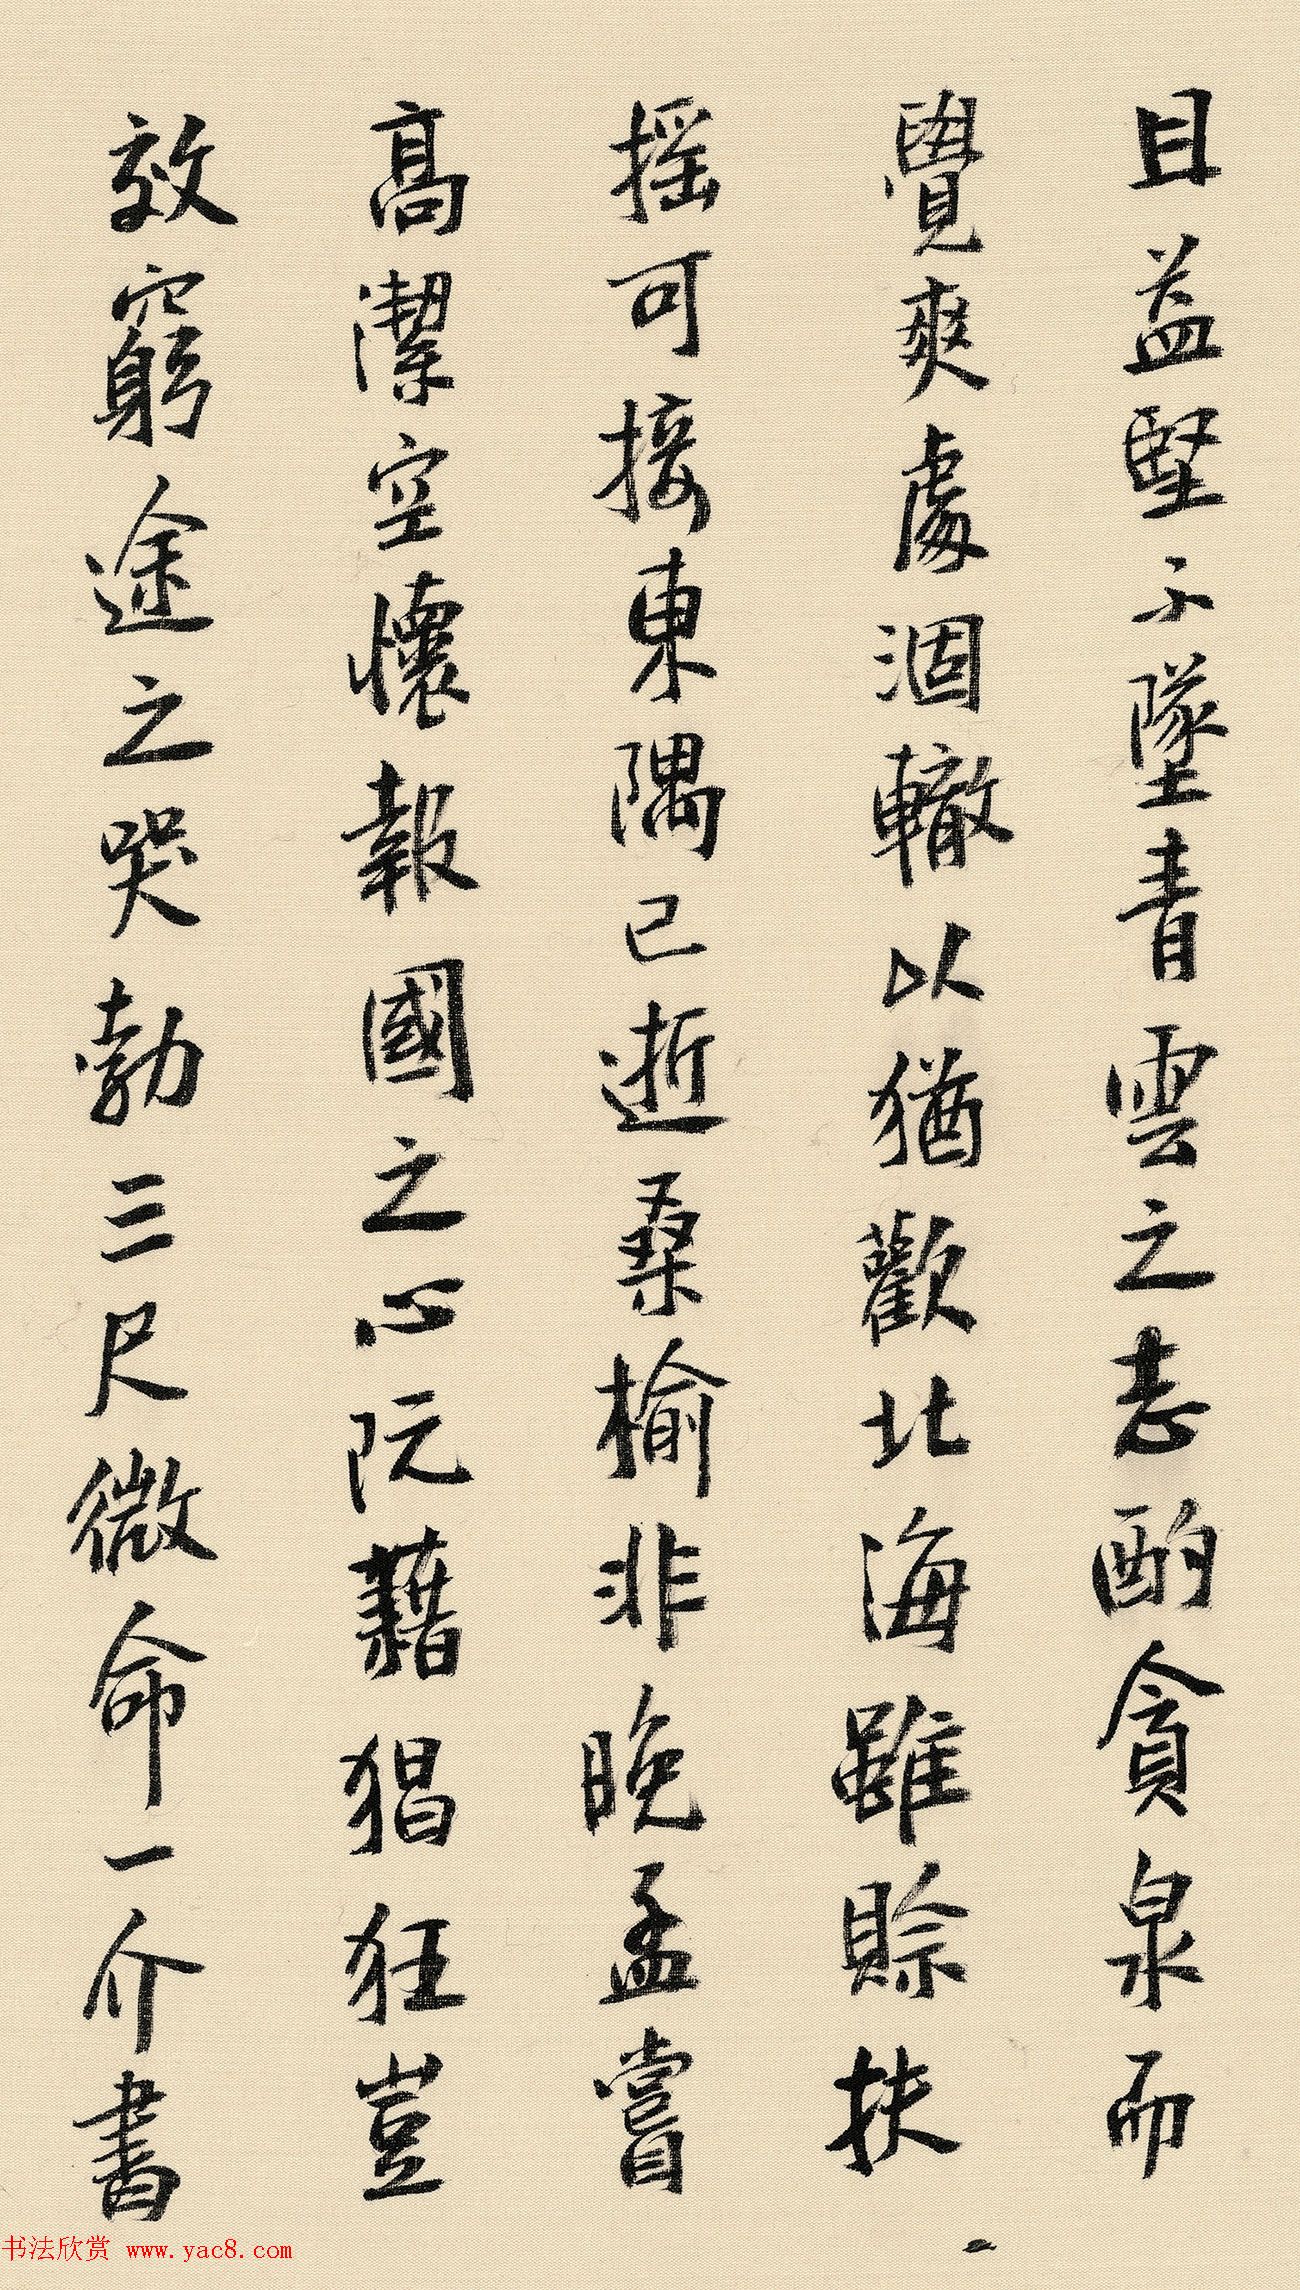 且益堅不墜青雲之志酌貪泉而
覺爽處涸轍以猶歡北海雖賒扶
摇可接東隅已逝桑榆非晚孟嘗
高潔空懷報國之心阮藉猖狂豈
效窮途之哭勃三尺微命一介書
书法欣赏 www.yac8.com